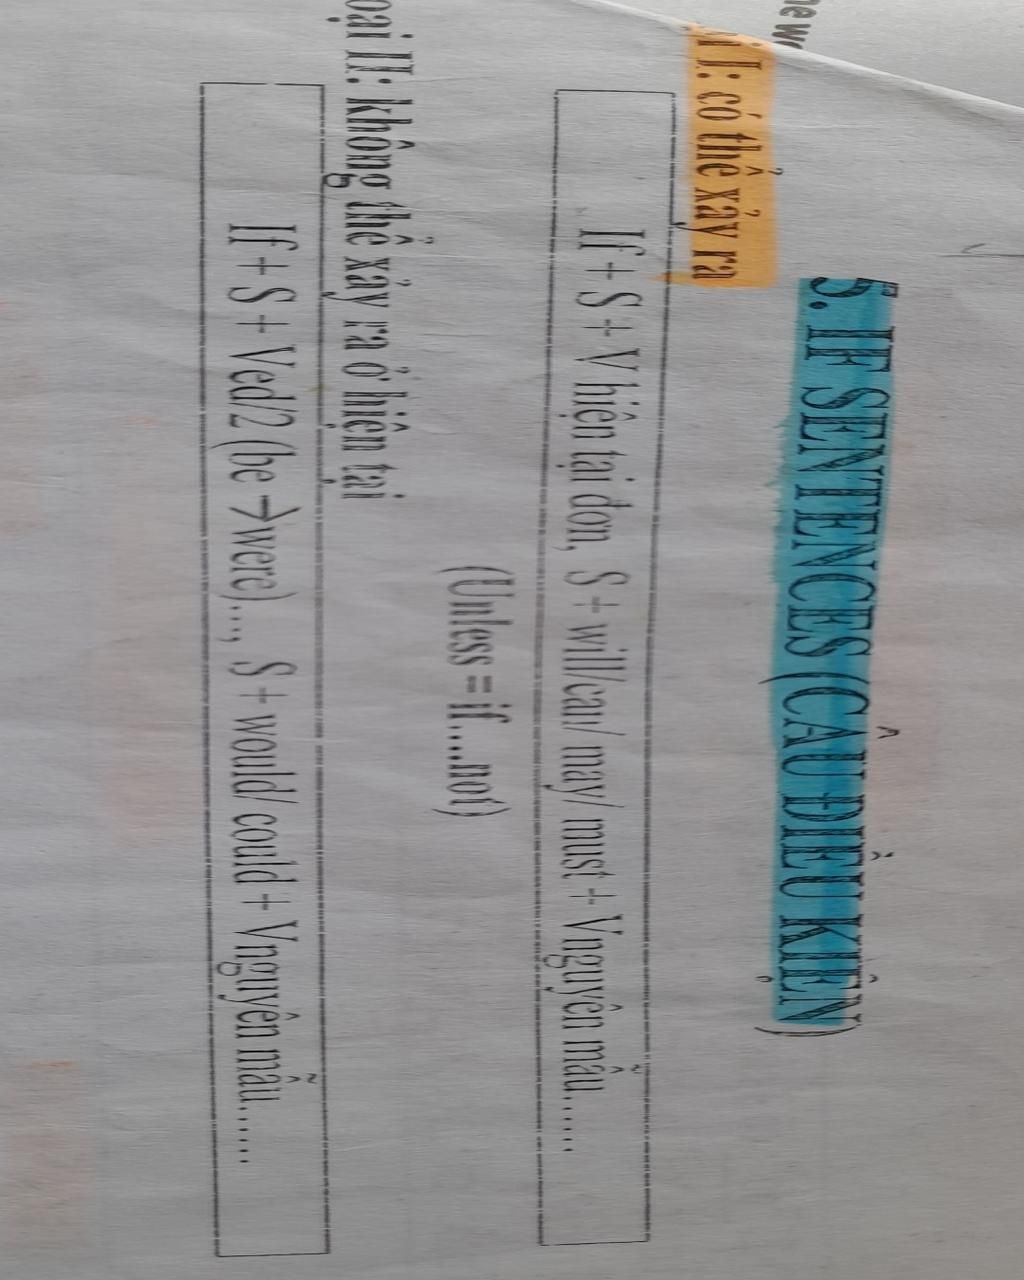 5. IF SENTENCES (CÂU ĐIỀU KIỆN)
I: có thể xảy ra
If + S + V hiện tại đơn, S + will/can/ may/ must + Vnguyên mẫu......
(Unless = if....not)
oại II: không thể xảy ra ở hiện tại
If + S + Ved/2 (be →were)..., S + would/ could + Vnguyên mẫu......